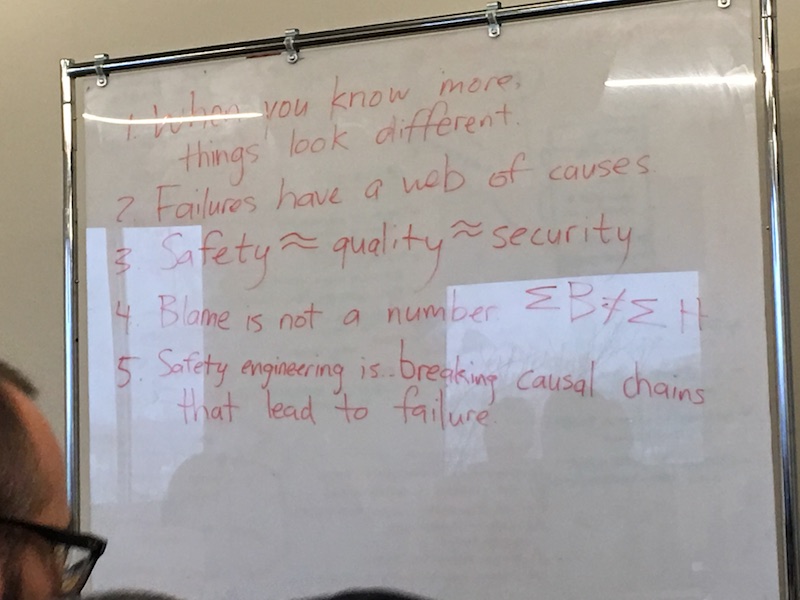 1. When you know more,
things look different.
2. Failures have a web of causes
3. Safety ≈ quality ≈ security
4. Blame is not a number. ΣB≠ΣH
5. Safety engineering is..breaking causal chains
that lead to failure.